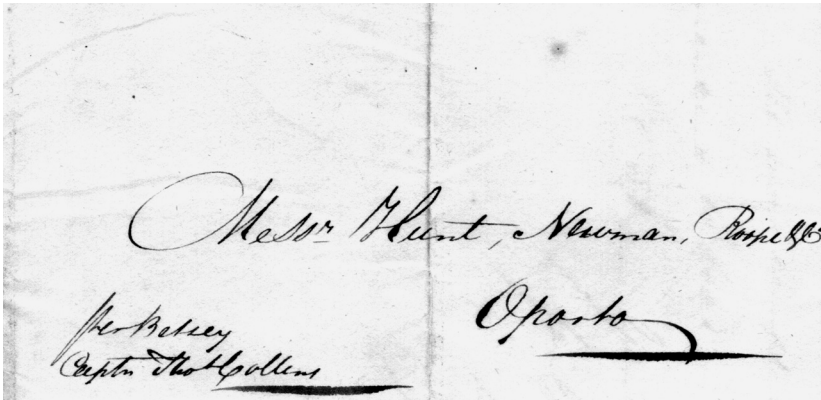 Messrs Hunt, Newman, Roope & Co
Oporto
per Betsey
Captn Thos Collens